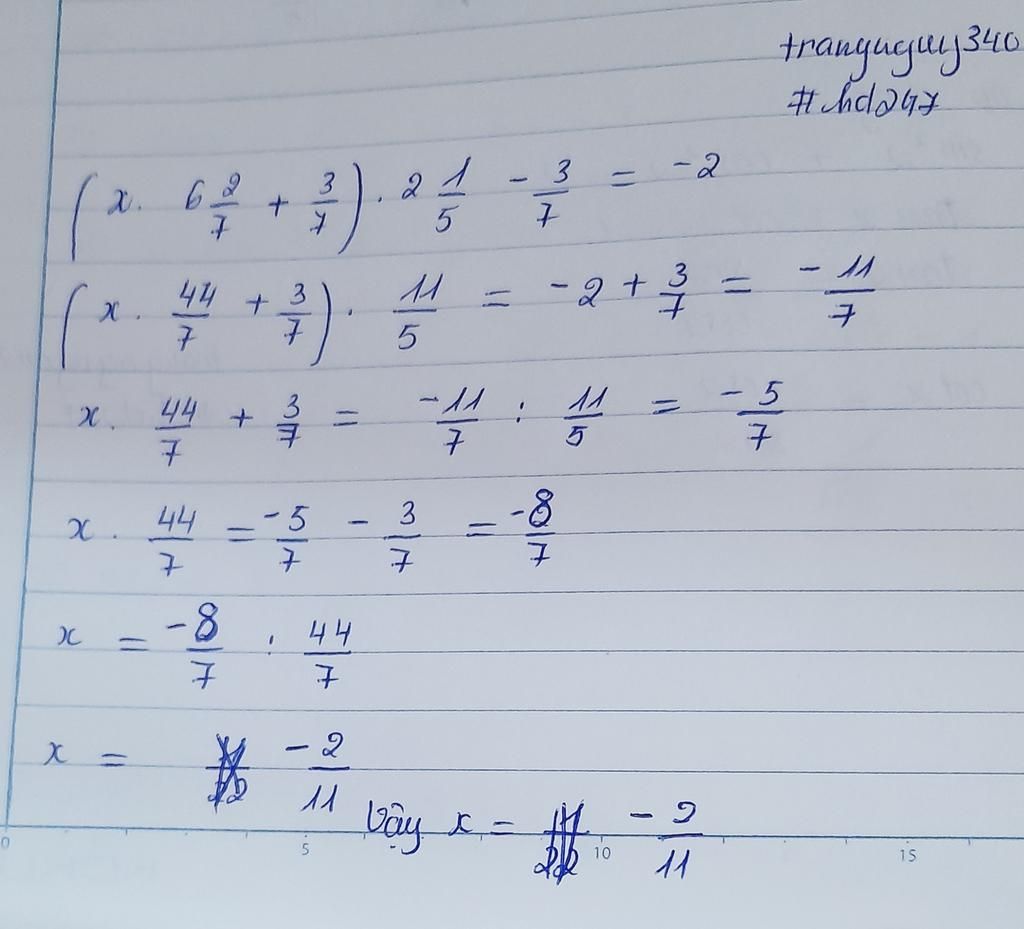 tranyuguy340
#hd247
(x. 6 2/7 + 3/7) . 2 1/5 - 3/7 = -2
(x. 44/7 + 3/7) . 11/5 = -2 + 3/7 = -11/7
x. 44/7 + 3/7 = -11/7 : 11/5 = -5/7
x. 44/7 = -5/7 - 3/7 = -8/7
x = -8/7 : 44/7
x = -2/11
Vậy x = -2/11
0 5 10 15